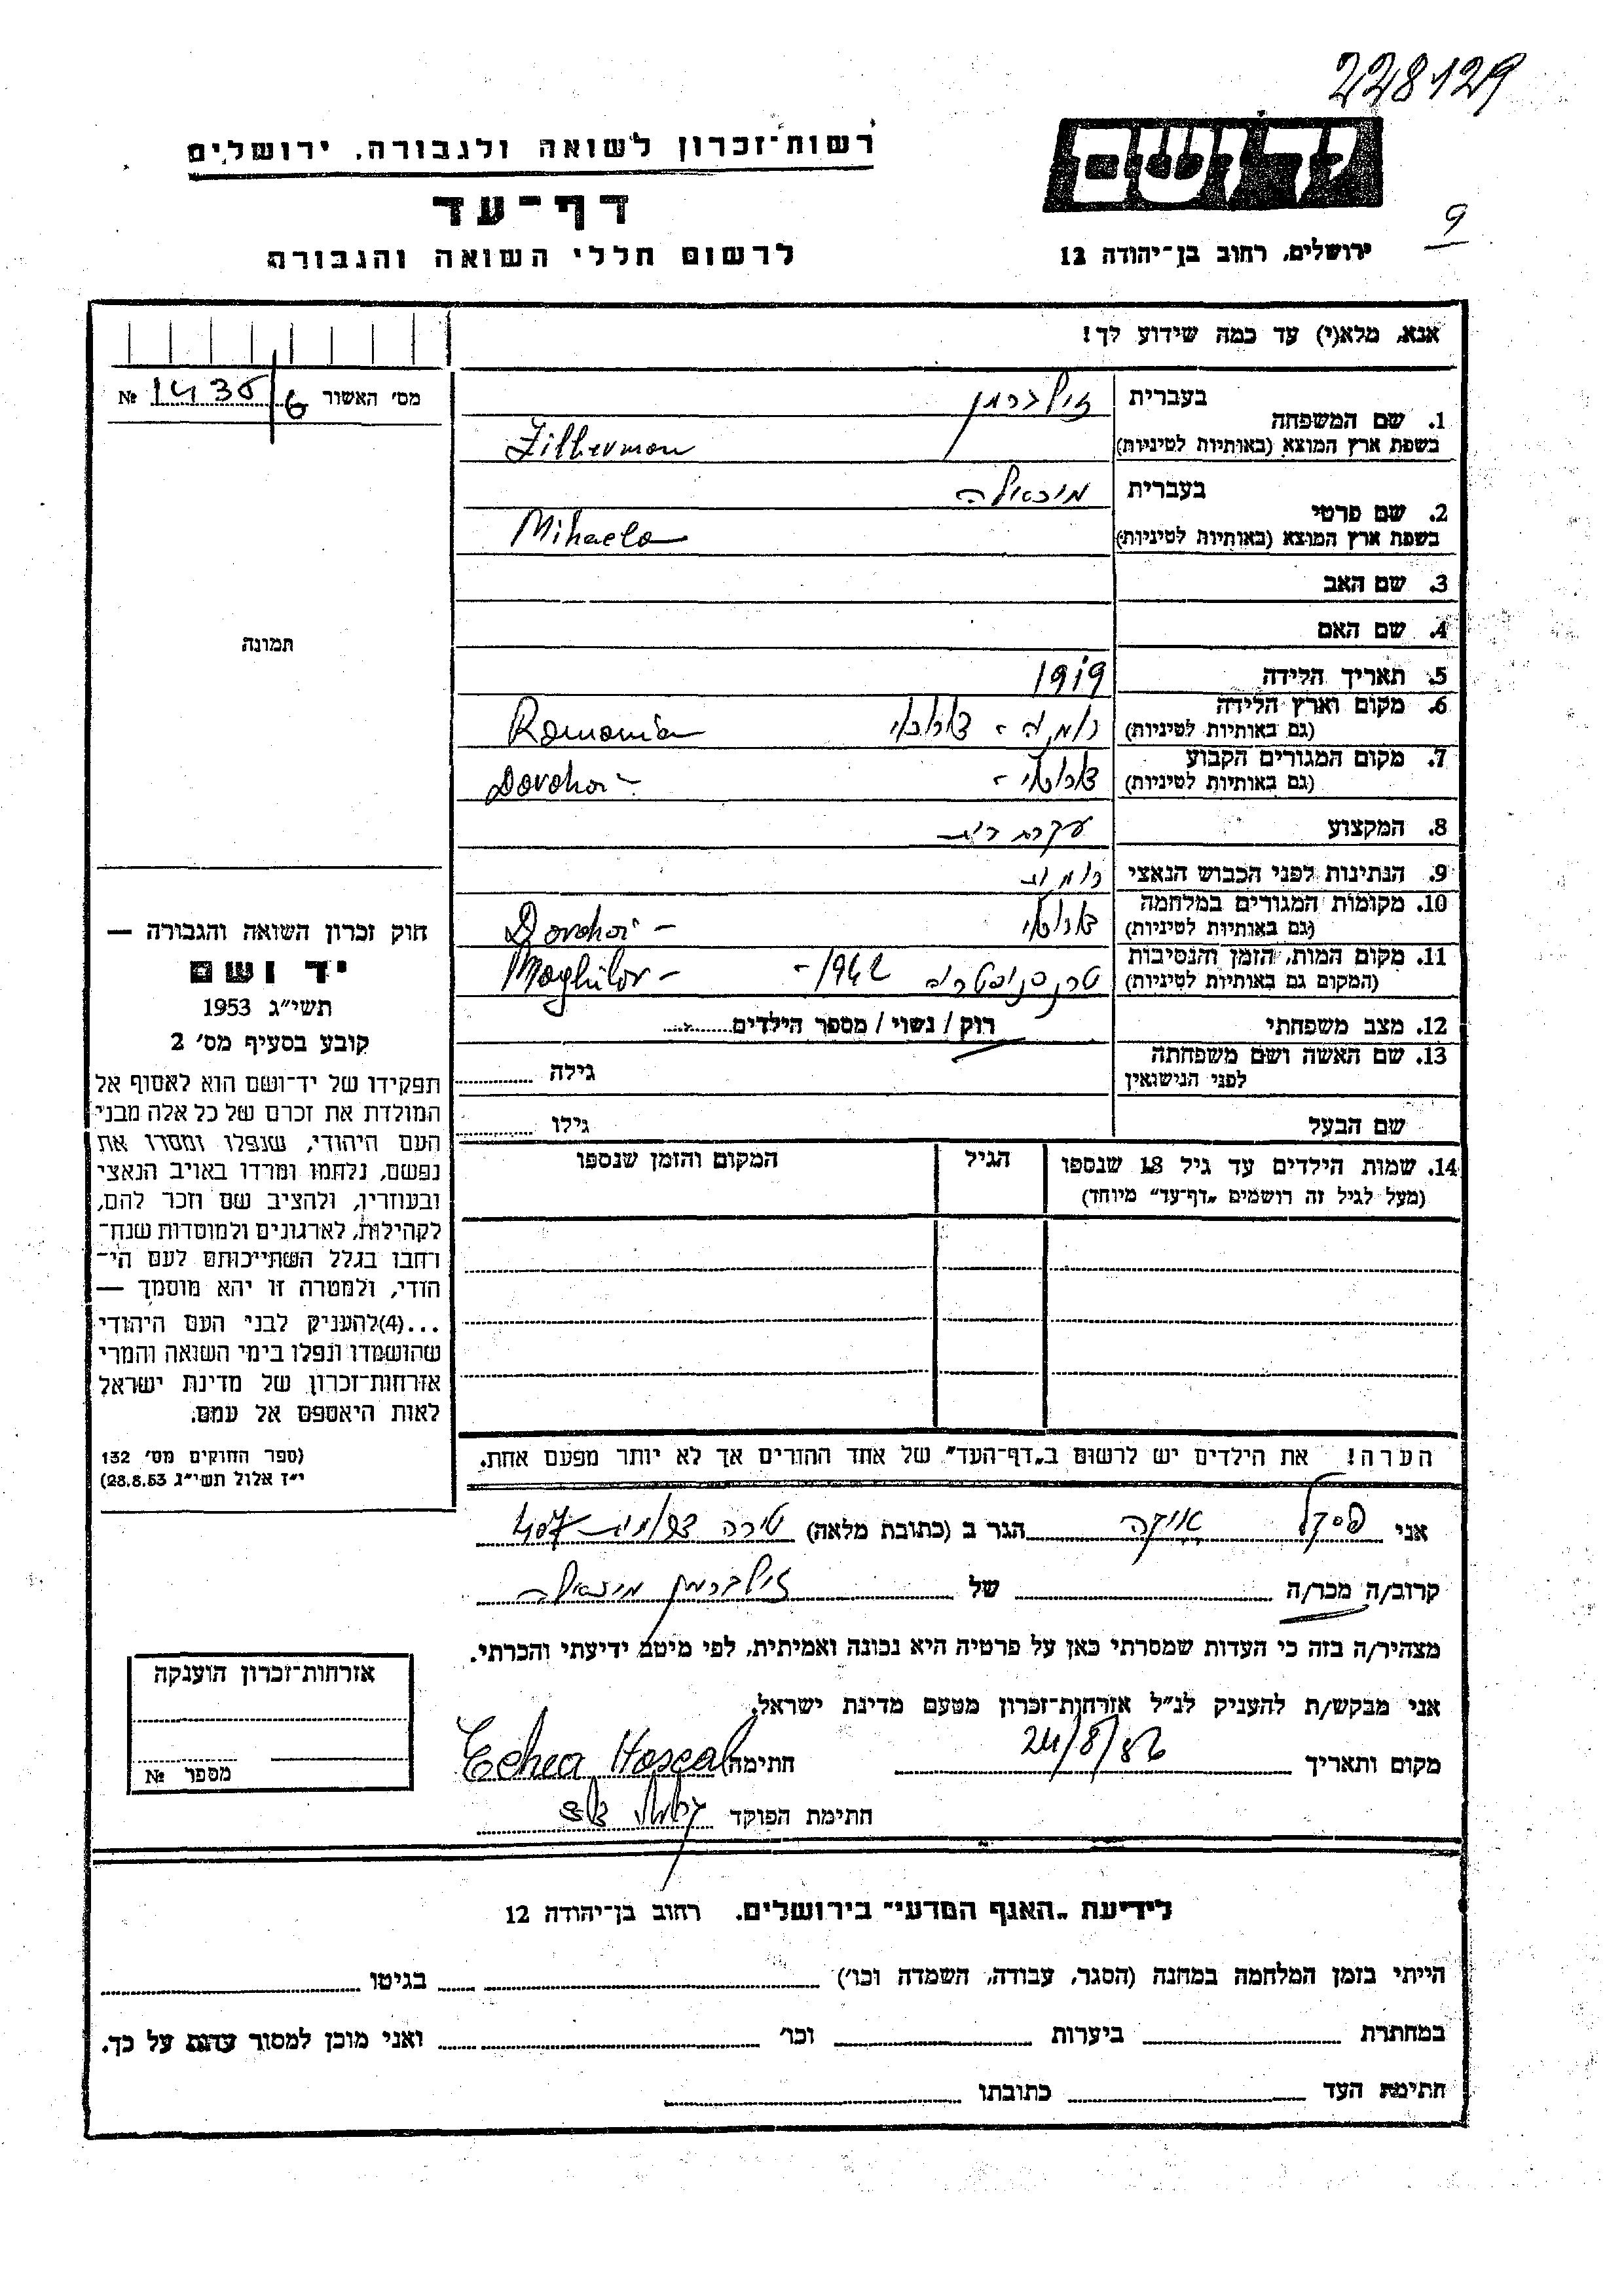 228129
יד ושם
רשות־זכרון לשואה ולגבורה, ירושלים
דף־עד
9
ירושלים, רחוב בן־יהודה 12
לרשום חללי השואה והגבורה
אנא, מלא(י) עד כמה שידוע לך!
מס׳ האשור 1435/6 №
תמונה
1. שם המשפחה
בעברית זילברמן
בשפת ארץ המוצא (באותיות לטיניות) Zilberman
2. שם פרטי
בעברית מיכאלה
בשפת ארץ המוצא (באותיות לטיניות) Mihaela
3. שם האב
4. שם האם
5. תאריך הלידה 1919
6. מקום וארץ הלידה רומניה - דורוהוי Romania
(גם באותיות לטיניות)
7. מקום המגורים הקבוע דורוהוי - Dorohoi -
(גם באותיות לטיניות)
8. המקצוע עקרת בית
9. הנתינות לפני הכבוש הנאצי רומנית
10. מקומות המגורים במלחמה דורוהוי Dorohoi -
(גם באותיות לטיניות)
11. מקום המות, הזמן והנסיבות טרנסניסטריה 1942 - Moghilov -
(המקום גם באותיות לטיניות)
12. מצב משפחתי רוק / נשוי / מספר הילדים
13. שם האשה ושם משפחתה גילה
לפני הנישואין
שם הבעל גילו
14. שמות הילדים עד גיל 18 שנספו הגיל המקום והזמן שנספו
(מעל לגיל זה רושמים „דף־עד״ מיוחד)
הערה! את הילדים יש לרשום ב„דף־העד״ של אחד ההורים אך לא יותר מפעם אחת.
חוק זכרון השואה והגבורה —
יד ושם
תשי״ג 1953
קובע בסעיף מס׳ 2
תפקידו של יד־ושם הוא לאסוף אל
המולדת את זכרם של כל אלה מבני
העם היהודי, שנפלו ומסרו את
נפשם, נלחמו ומרדו באויב הנאצי
ובעוזריו, ולהציב שם וזכר להם,
לקהילות, לארגונים ולמוסדות שנח־
רחבו בגלל השתייכותם לעם הי־
הודי, ולמטרה זו יהא מוסמך —
...(4)להעניק לבני העם היהודי
שהושמדו ונפלו בימי השואה והמרי
אזרחות־זכרון של מדינת ישראל
לאות היאספם אל עמם.
(ספר החוקים מס׳ 132
י״ז אלול תשי״ג 28.8.53)
אני הגר ב (כתובת מלאה)
קרוב/ה מכר/ה של זילברמן מיכאלה
מצהיר/ה בזה כי העדות שמסרתי כאן על פרטיה היא נכונה ואמיתית, לפי מיטב ידיעתי והכרתי.
אני מבקש/ת להעניק לנ״ל אזרחות־זכרון מטעם מדינת ישראל.
מקום ותאריך 24/8/86 חתימה
חתימת הפוקד
אזרחות־זכרון הוענקה
מספר №
לידיעת „האגף המדעי״ בירושלים. רחוב בן־יהודה 12
הייתי בזמן המלחמה במחנה (הסגר, עבודה, השמדה וכו׳) בגיטו
במחתרת ביערות וכו׳ ואני מוכן למסור עדות על כך.
חתימת העד כתובתו